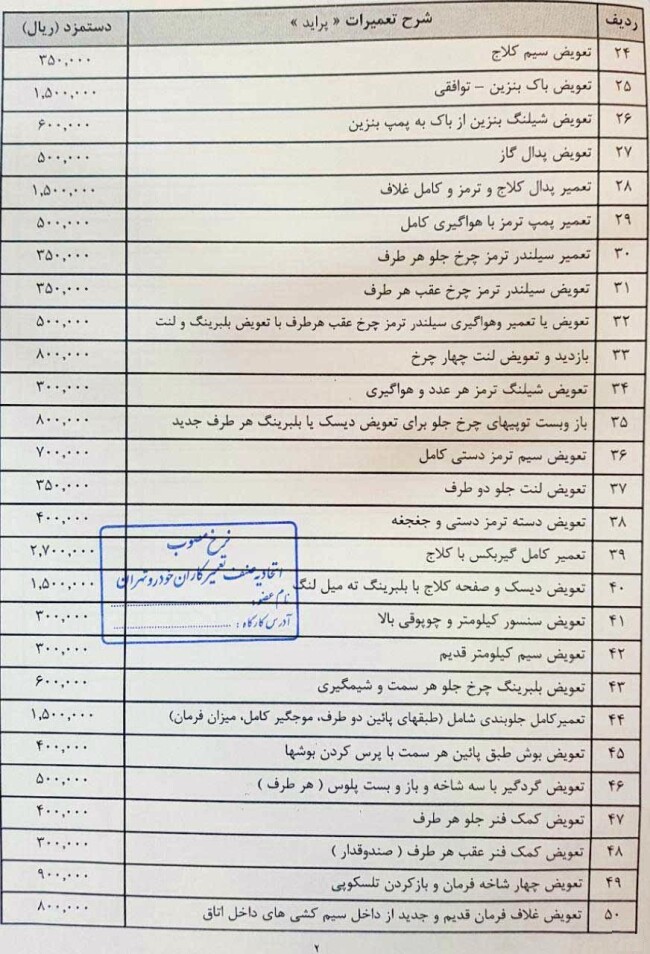 ردیف شرح تعمیرات « پراید » دستمزد (ریال)
۲۴ تعویض سیم کلاج ۳۵۰,۰۰۰
۲۵ تعویض باک بنزین – توافقی ۱,۵۰۰,۰۰۰
۲۶ تعویض شیلنگ بنزین از باک به پمپ بنزین ۶۰۰,۰۰۰
۲۷ تعویض پدال گاز ۵۰۰,۰۰۰
۲۸ تعمیر پدال کلاج و ترمز و کامل غلاف ۱,۵۰۰,۰۰۰
۲۹ تعمیر پمپ ترمز با هواگیری کامل ۵۰۰,۰۰۰
۳۰ تعمیر سیلندر ترمز چرخ جلو هر طرف ۳۵۰,۰۰۰
۳۱ تعویض سیلندر ترمز چرخ عقب هر طرف ۳۵۰,۰۰۰
۳۲ تعویض یا تعمیر وهواگیری سیلندر ترمز چرخ عقب هرطرف با تعویض بلبرینگ و لنت ۵۰۰,۰۰۰
۳۳ بازدید و تعویض لنت چهار چرخ ۸۰۰,۰۰۰
۳۴ تعویض شیلنگ ترمز هر عدد و هواگیری ۳۰۰,۰۰۰
۳۵ باز وبست توپیهای چرخ جلو برای تعویض دیسک یا بلبرینگ هر طرف جدید ۸۰۰,۰۰۰
۳۶ تعویض سیم ترمز دستی کامل ۷۰۰,۰۰۰
۳۷ تعویض لنت جلو دو طرف ۳۵۰,۰۰۰
۳۸ تعویض دسته ترمز دستی و جغجغه ۴۰۰,۰۰۰
۳۹ تعمیر کامل گیربکس با کلاج ۲,۷۰۰,۰۰۰
۴۰ تعویض دیسک و صفحه کلاج با بلبرینگ ته میل لنگ ۱,۵۰۰,۰۰۰
۴۱ تعویض سنسور کیلومتر و چوپوقی بالا ۳۰۰,۰۰۰
۴۲ تعویض سیم کیلومتر قدیم ۳۰۰,۰۰۰
۴۳ تعویض بلبرینگ چرخ جلو هر سمت و شیمگیری ۶۰۰,۰۰۰
۴۴ تعمیرکامل جلوبندی شامل (طبقهای پائین دو طرف، موجگیر کامل، میزان فرمان) ۱,۵۰۰,۰۰۰
۴۵ تعویض بوش طبق پائین هر سمت با پرس کردن بوشها ۴۰۰,۰۰۰
۴۶ تعویض گردگیر با سه شاخه و باز و بست پلوس ( هر طرف ) ۵۰۰,۰۰۰
۴۷ تعویض کمک فنر جلو هر طرف ۴۰۰,۰۰۰
۴۸ تعویض کمک فنر عقب هر طرف ( صندوقدار ) ۳۰۰,۰۰۰
۴۹ تعویض چهار شاخه فرمان و بازکردن تلسکوپی ۹۰۰,۰۰۰
۵۰ تعویض غلاف فرمان قدیم و جدید از داخل سیم کشی های داخل اتاق ۸۰۰,۰۰۰
نرخ مصوب
اتحادیه صنف تعمیرکاران خودرو تهران
نام عضو:
آدرس کارگاه :
۲